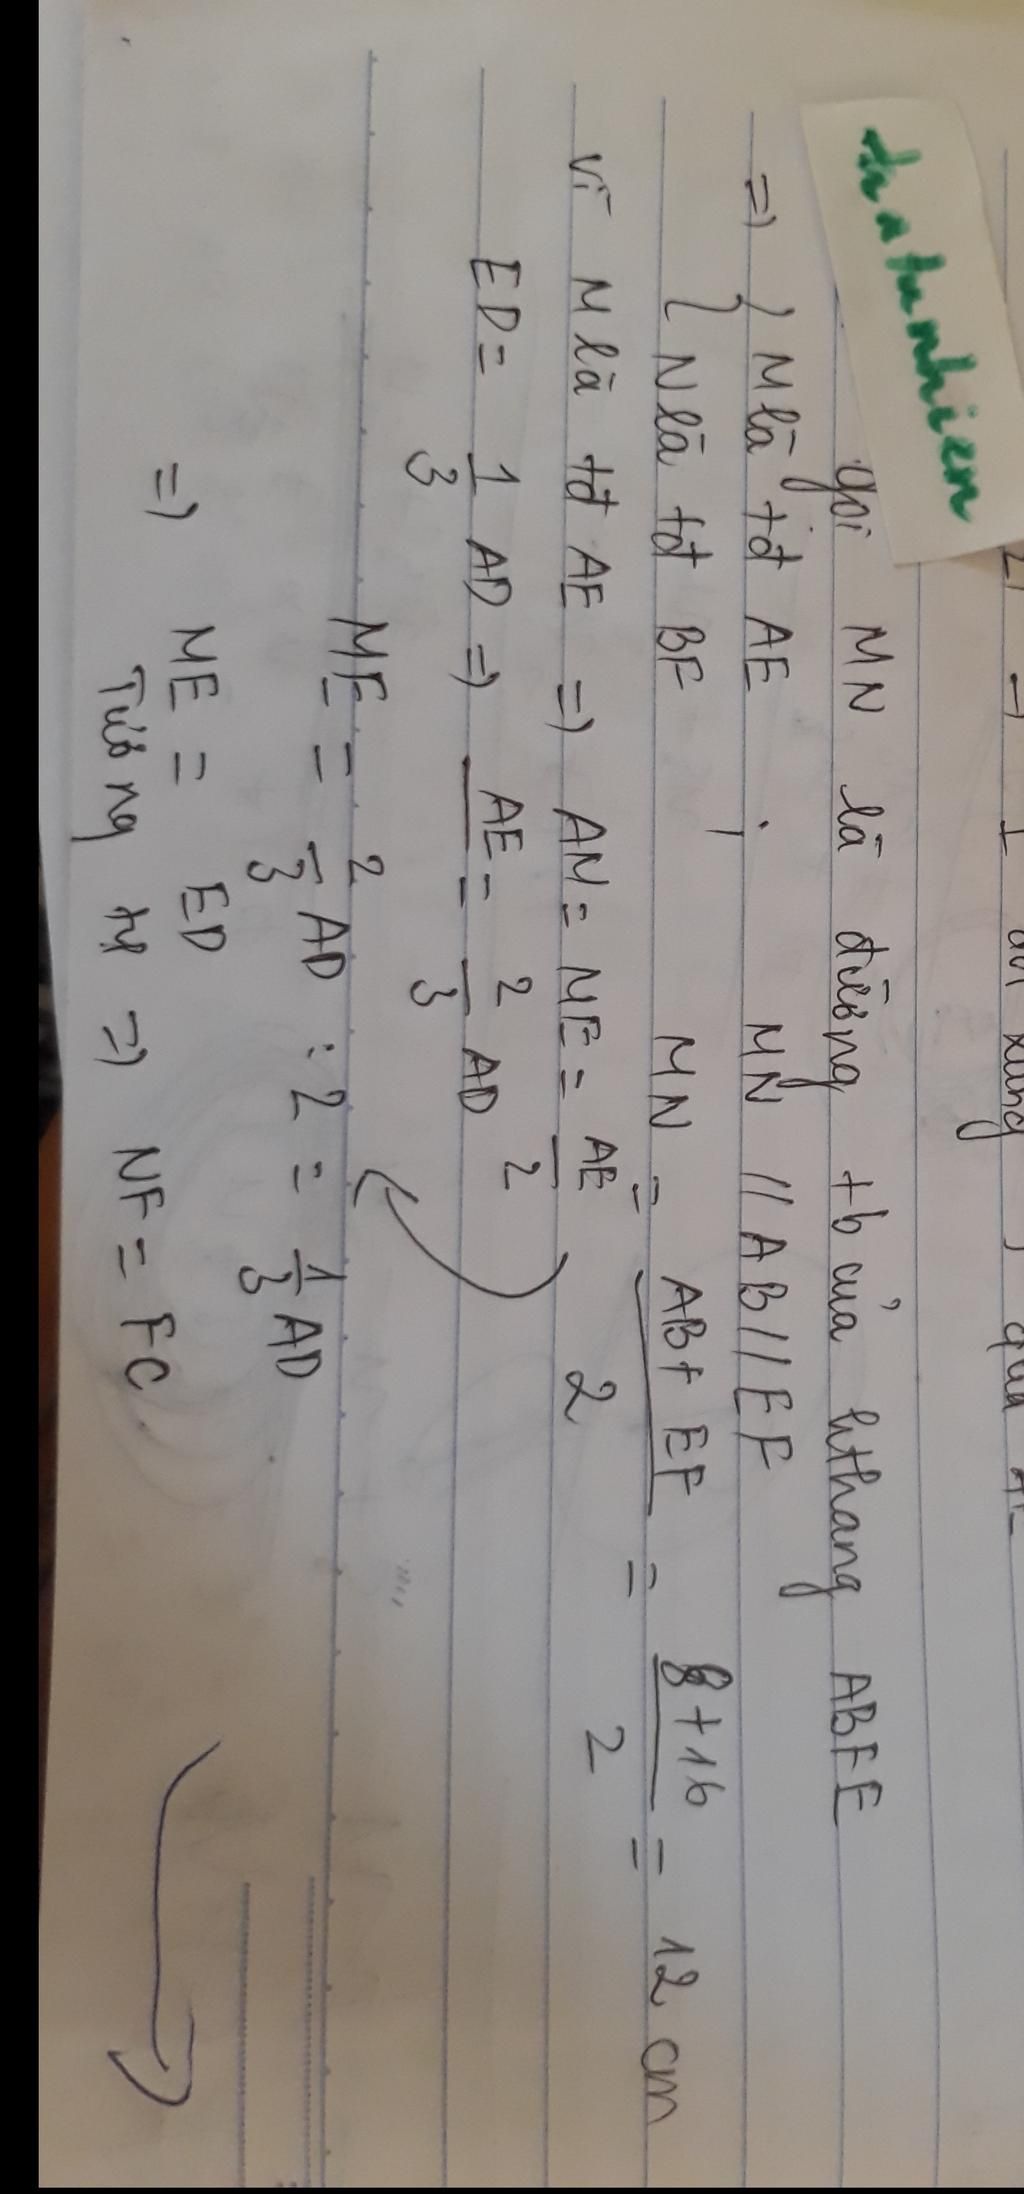 tu nhiem
gọi MN là đường tb của hthang ABFE
=> } M là tđ AE . MN // AB // EF
{ N là tđ BF , MN = AB + EF / 2 = 8 + 16 / 2 = 12 cm
Vì M là tđ AE => AM = ME = AE / 2
ED = 1/3 AD => AE = 2/3 AD
ME = 2/3 AD : 2 = 1/3 AD
=> ME = ED
Tương tự => NF = FC